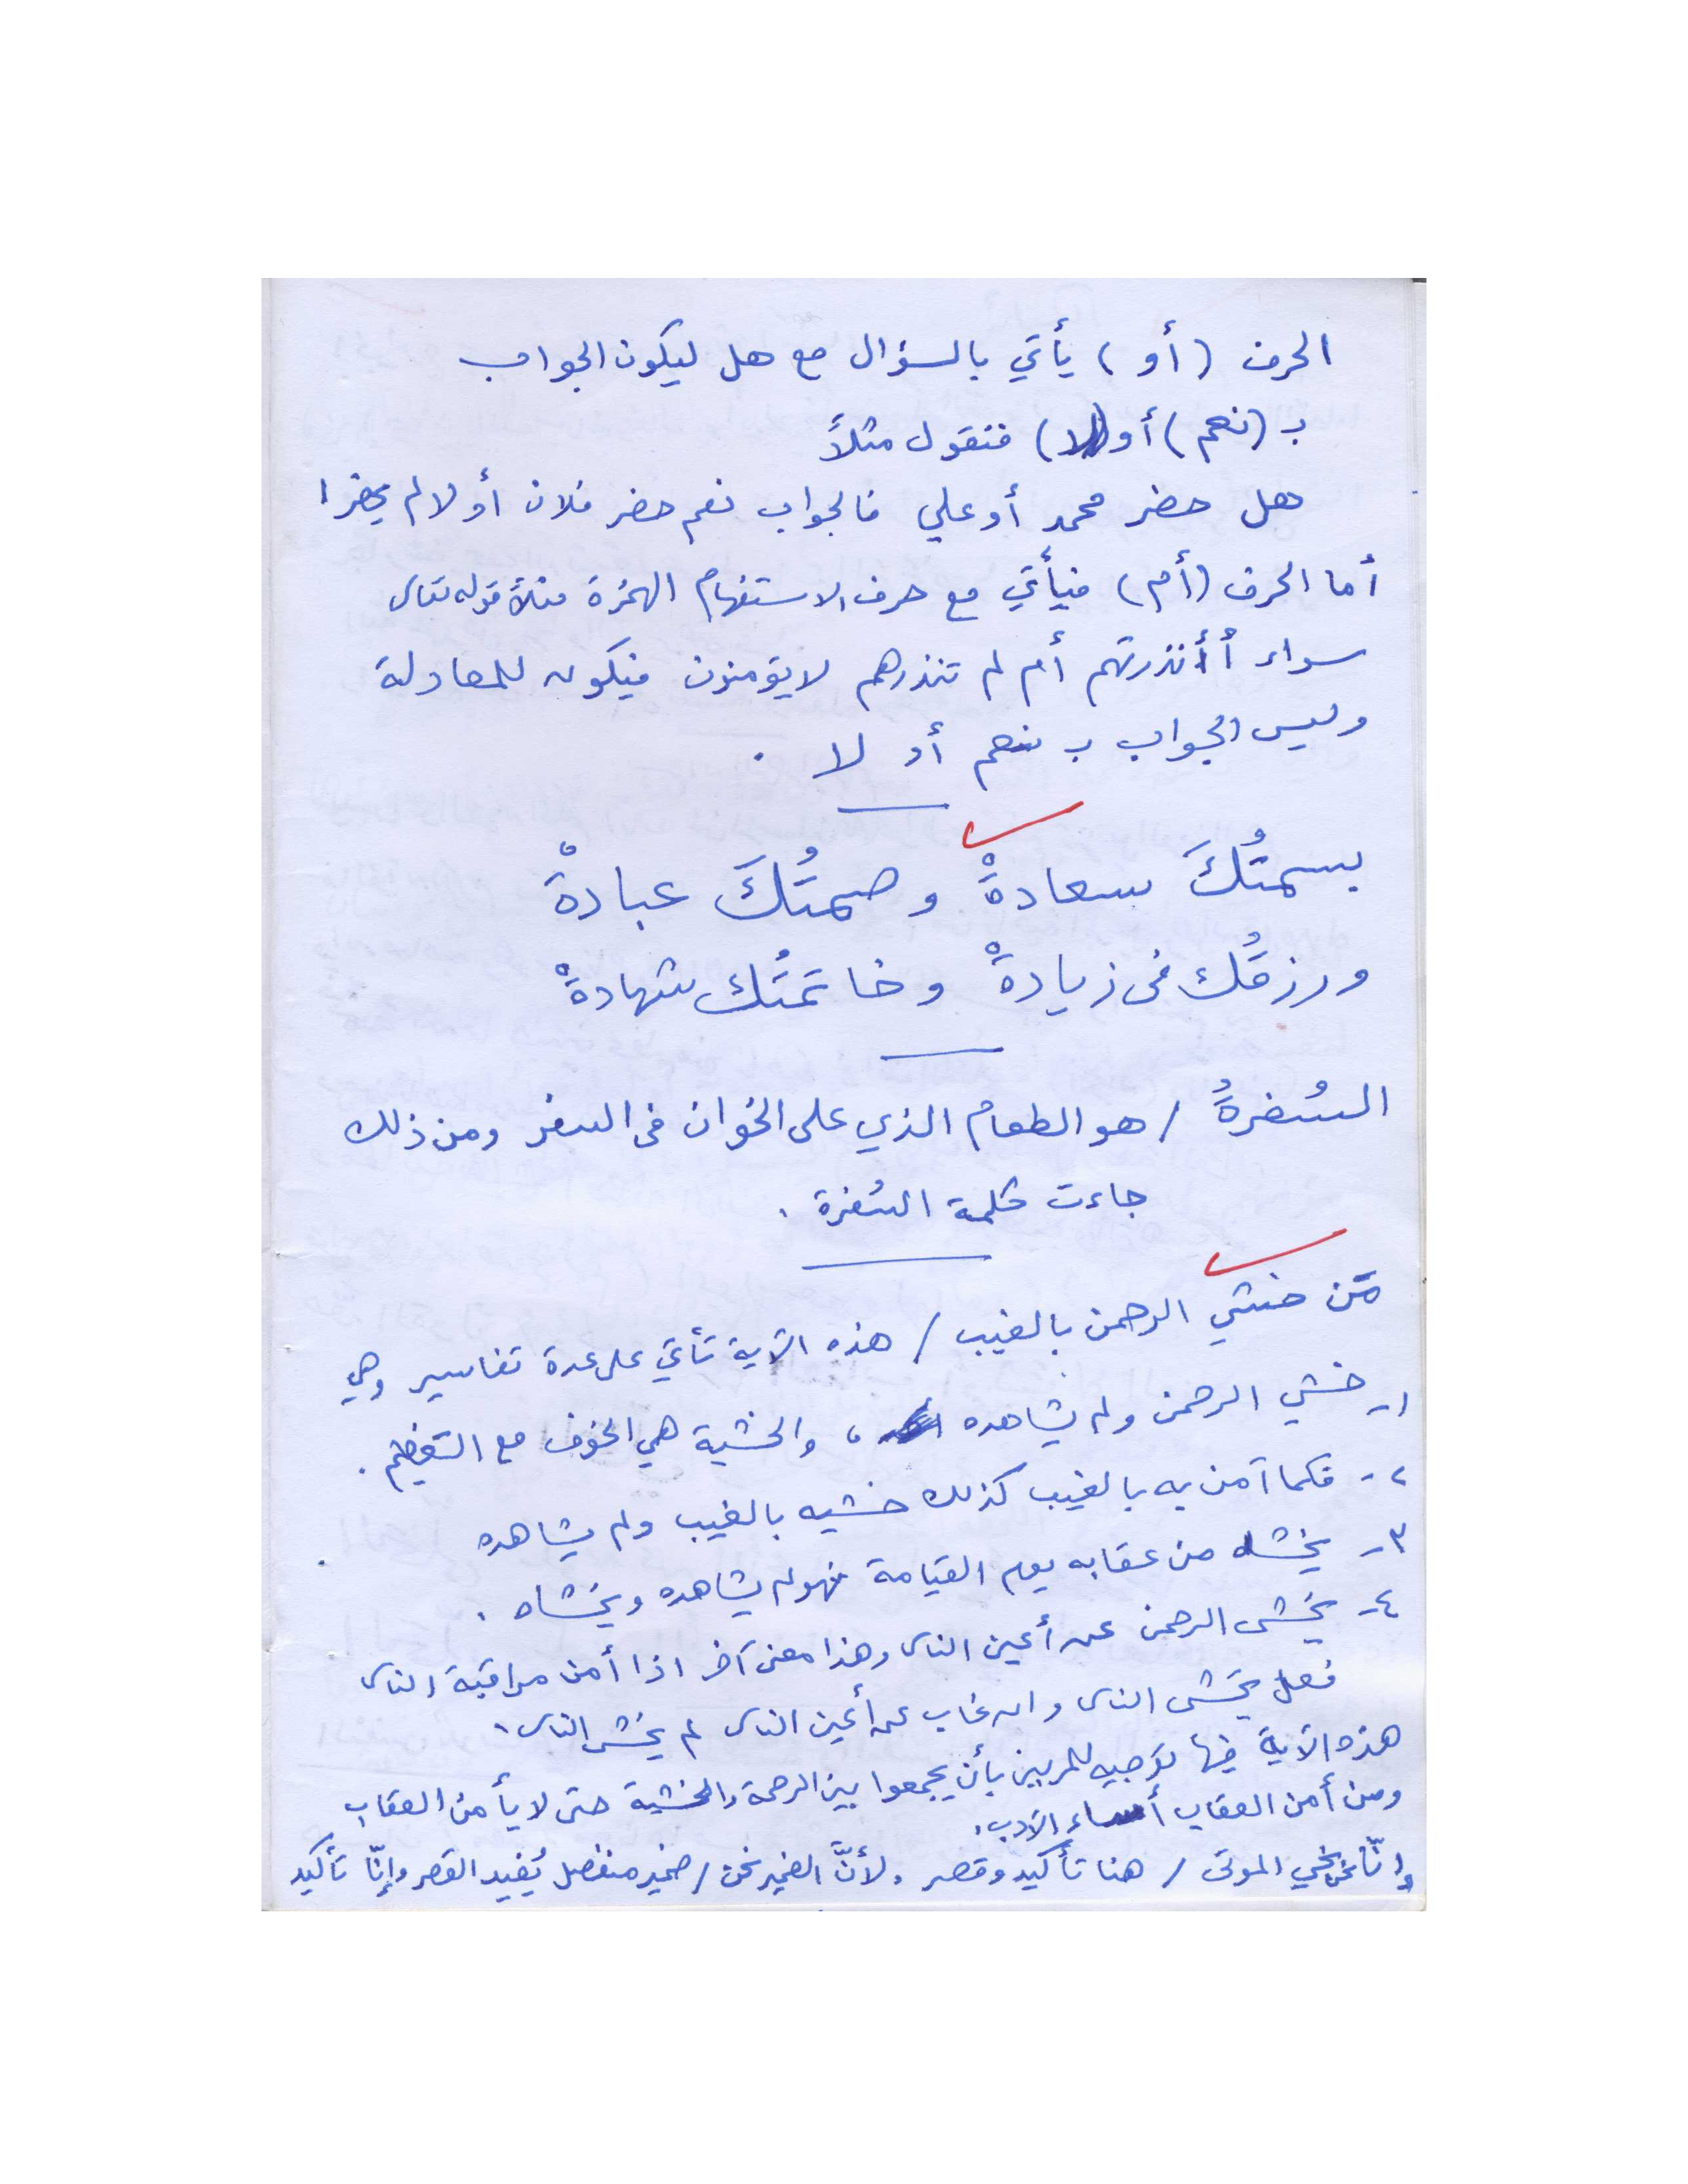 الحرف (أو) يأتي بالسؤال مع هل ليكون الجواب
بـ (نعم) أو (لا) فنقول مثلاً
هل حضر محمد أو علي فالجواب نعم حضر فلان أو لا لم يحضرا
أما الحرف (أم) فيأتي مع حرف الاستفهام الهمزة مثلاً قوله تعالى
سواء أأنذرتهم أم لم تنذرهم لا يؤمنون فيكون للمعادلة
وليس الجواب بـ نعم أو لا .
بسمتُكَ سعادةْ وصمتُكَ عبادةْ
ورزقُك في زيادةْ وخاتمتُك شهادةْ
السُفرةُ / هو الطعام الذي على الخوان في السفر ومن ذلك
جاءت كلمة السُفرة .
مَّن خشي الرحمن بالغيب / هذه الآية تأتي على عدة تفاسير وهي
١- خشي الرحمن ولم يشاهده ، والخشية هي الخوف مع التعظيم .
٢- فكما آمن به بالغيب كذلك خشيه بالغيب ولم يشاهده
٣- يخشاه من عقابه يوم القيامة فهو لم يشاهده ويخشاه .
٤- يخشى الرحمن عن أعين الناس وهذا معنى آخر اذا أمن مراقبة الناس
يخشى الناس وان غاب عن أعين الناس لم يخش الناس .
هذه الآية فيها توجيه للمربين بأن يجمعوا بين الرحمة والخشية حتى لا يأمن العقاب
ومن أمن العقاب أساء الأدب .
وإنّا نحن نحي الموتى / هنا تأكيد وقصر . لأنَّ الضمير نحن / ضمير منفصل يُفيد القصر وإنّا تأكيد